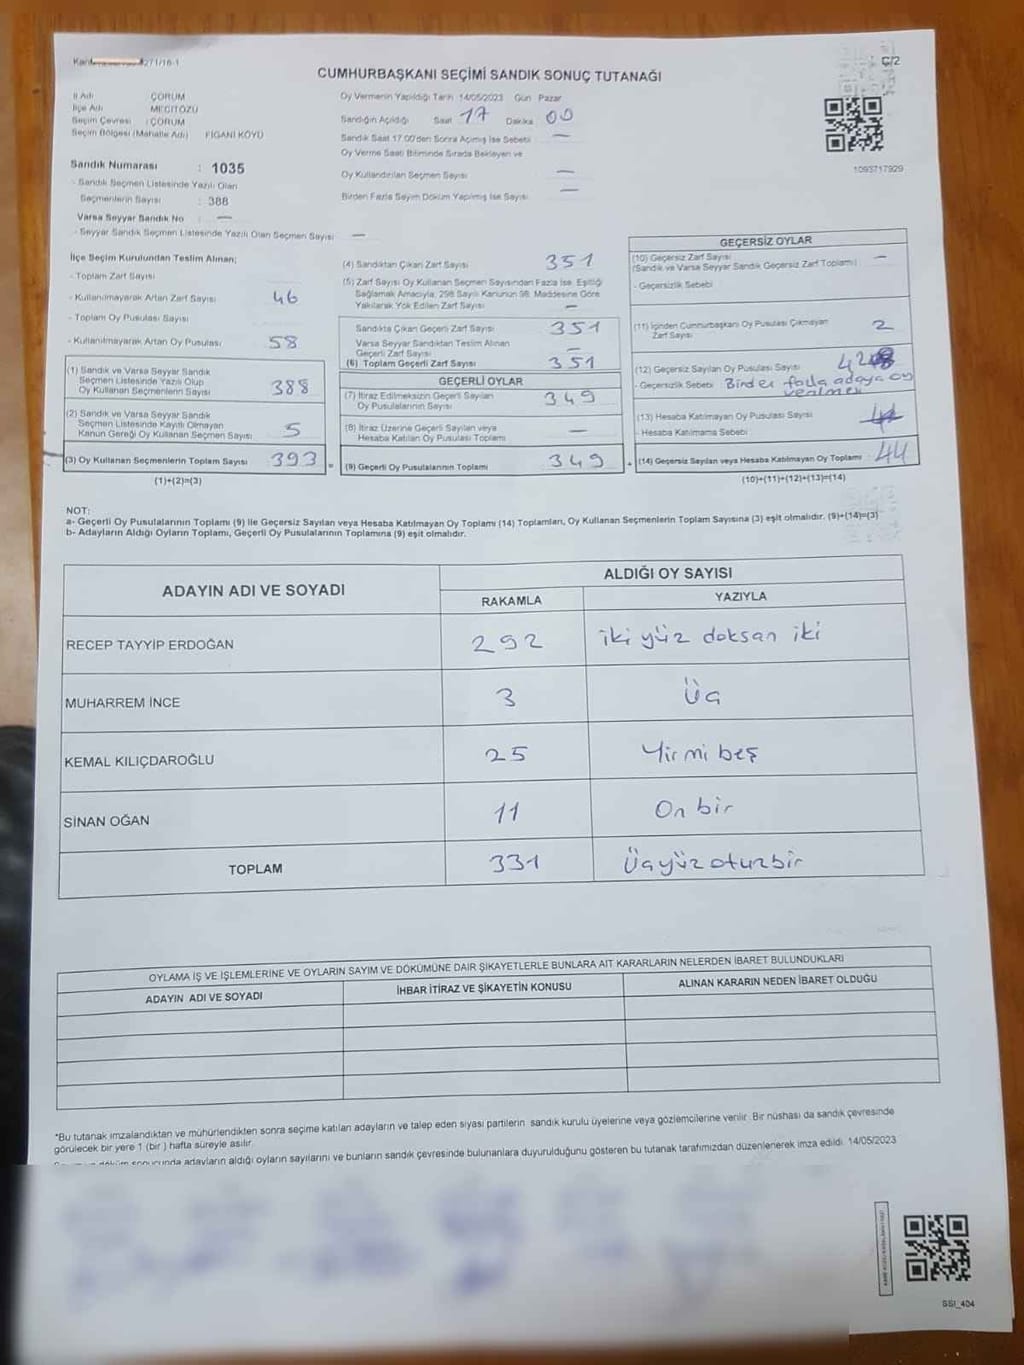 Ç/2
CUMHURBAŞKANI SEÇİMİ SANDIK SONUÇ TUTANAĞI
İl Adı ÇORUM
İlçe Adı MECİTÖZÜ
Seçim Çevresi : ÇORUM
Seçim Bölgesi (Mahalle Adı) FIGANİ KÖYÜ
Sandık Numarası : 1035
- Sandık Seçmen Listesinde Yazılı Olan
Seçmenlerin Sayısı : 388
Varsa Seyyar Sandık No : —
- Seyyar Sandık Seçmen Listesinde Yazılı Olan Seçmen Sayısı —
Oy Vermenin Yapıldığı Tarih 14/05/2023 Gün Pazar
Sandığın Açıldığı Saat 17 Dakika 00
Sandık Saat 17.00'den Sonra Açılmış İse Sebebi —
Oy Verme Saati Bitiminde Sırada Bekleyen ve
Oy Kullandırılan Seçmen Sayısı —
Birden Fazla Sayım Döküm Yapılmış İse Sayısı —
1093717929
İlçe Seçim Kurulundan Teslim Alınan;
- Toplam Zarf Sayısı
- Kullanılmayarak Artan Zarf Sayısı 46
- Toplam Oy Pusulası Sayısı
- Kullanılmayarak Artan Oy Pusulası 58
(1) Sandık ve Varsa Seyyar Sandık
Seçmen Listesinde Yazılı Olup
Oy Kullanan Seçmenlerin Sayısı 388
(2) Sandık ve Varsa Seyyar Sandık
Seçmen Listesinde Kayıtlı Olmayan
Kanun Gereği Oy Kullanan Seçmen Sayısı 5
(3) Oy Kullanan Seçmenlerin Toplam Sayısı 393 =
(1)+(2)=(3)
(4) Sandıktan Çıkan Zarf Sayısı 351
(5) Zarf Sayısı Oy Kullanan Seçmen Sayısından Fazla İse, Eşitliği
Sağlamak Amacıyla, 298 Sayılı Kanunun 98. Maddesine Göre
Yakılarak Yok Edilen Zarf Sayısı —
Sandıkta Çıkan Geçerli Zarf Sayısı 351
Varsa Seyyar Sandıktan Teslim Alınan
Geçerli Zarf Sayısı —
(6) Toplam Geçerli Zarf Sayısı 351
GEÇERLİ OYLAR
(7) İtiraz Edilmeksizin Geçerli Sayılan
Oy Pusulalarının Sayısı 349
(8) İtiraz Üzerine Geçerli Sayılan veya
Hesaba Katılan Oy Pusulası Toplamı —
(9) Geçerli Oy Pusulalarının Toplamı 349 +
GEÇERSİZ OYLAR
(10) Geçersiz Zarf Sayısı —
(Sandık ve Varsa Seyyar Sandık Geçersiz Zarf Toplamı)
- Geçersizlik Sebebi
(11) İçinden Cumhurbaşkanı Oy Pusulası Çıkmayan
Zarf Sayısı 2
(12) Geçersiz Sayılan Oy Pusulası Sayısı
- Geçersizlik Sebebi Birden fazla adaya oy
verilmesi
(13) Hesaba Katılmayan Oy Pusulası Sayısı
- Hesaba Katılmama Sebebi
(14) Geçersiz Sayılan veya Hesaba Katılmayan Oy Toplamı 44
(10)+(11)+(12)+(13)=(14)
NOT:
a- Geçerli Oy Pusulalarının Toplamı (9) ile Geçersiz Sayılan veya Hesaba Katılmayan Oy Toplamı (14) Toplamları, Oy Kullanan Seçmenlerin Toplam Sayısına (3) eşit olmalıdır. (9)+(14)=(3)
b- Adayların Aldığı Oyların Toplamı, Geçerli Oy Pusulalarının Toplamına (9) eşit olmalıdır.
ADAYIN ADI VE SOYADI
ALDIĞI OY SAYISI
RAKAMLA YAZIYLA
RECEP TAYYİP ERDOĞAN 292 iki yüz doksan iki
MUHARREM İNCE 3 Üç
KEMAL KILIÇDAROĞLU 25 Yirmi beş
SİNAN OĞAN 11 On bir
TOPLAM 331 Üçyüzoturbir
OYLAMA İŞ VE İŞLEMLERİNE VE OYLARIN SAYIM VE DÖKÜMÜNE DAİR ŞİKAYETLERLE BUNLARA AİT KARARLARIN NELERDEN İBARET BULUNDUKLARI
ADAYIN ADI VE SOYADI İHBAR İTİRAZ VE ŞİKAYETİN KONUSU ALINAN KARARIN NEDEN İBARET OLDUĞU
*Bu tutanak imzalandıktan ve mühürlendikten sonra seçime katılan adayların ve talep eden siyasi partilerin sandık kurulu üyelerine veya gözlemcilerine verilir. Bir nüshası da sandık çevresinde
görülecek bir yere 1 (bir ) hafta süreyle asılır.
adayların aldığı oyların sayılarını ve bunların sandık çevresinde bulunanlara duyurulduğunu gösteren bu tutanak tarafımızdan düzenlenerek imza edildi. 14/05/2023
SSI_404